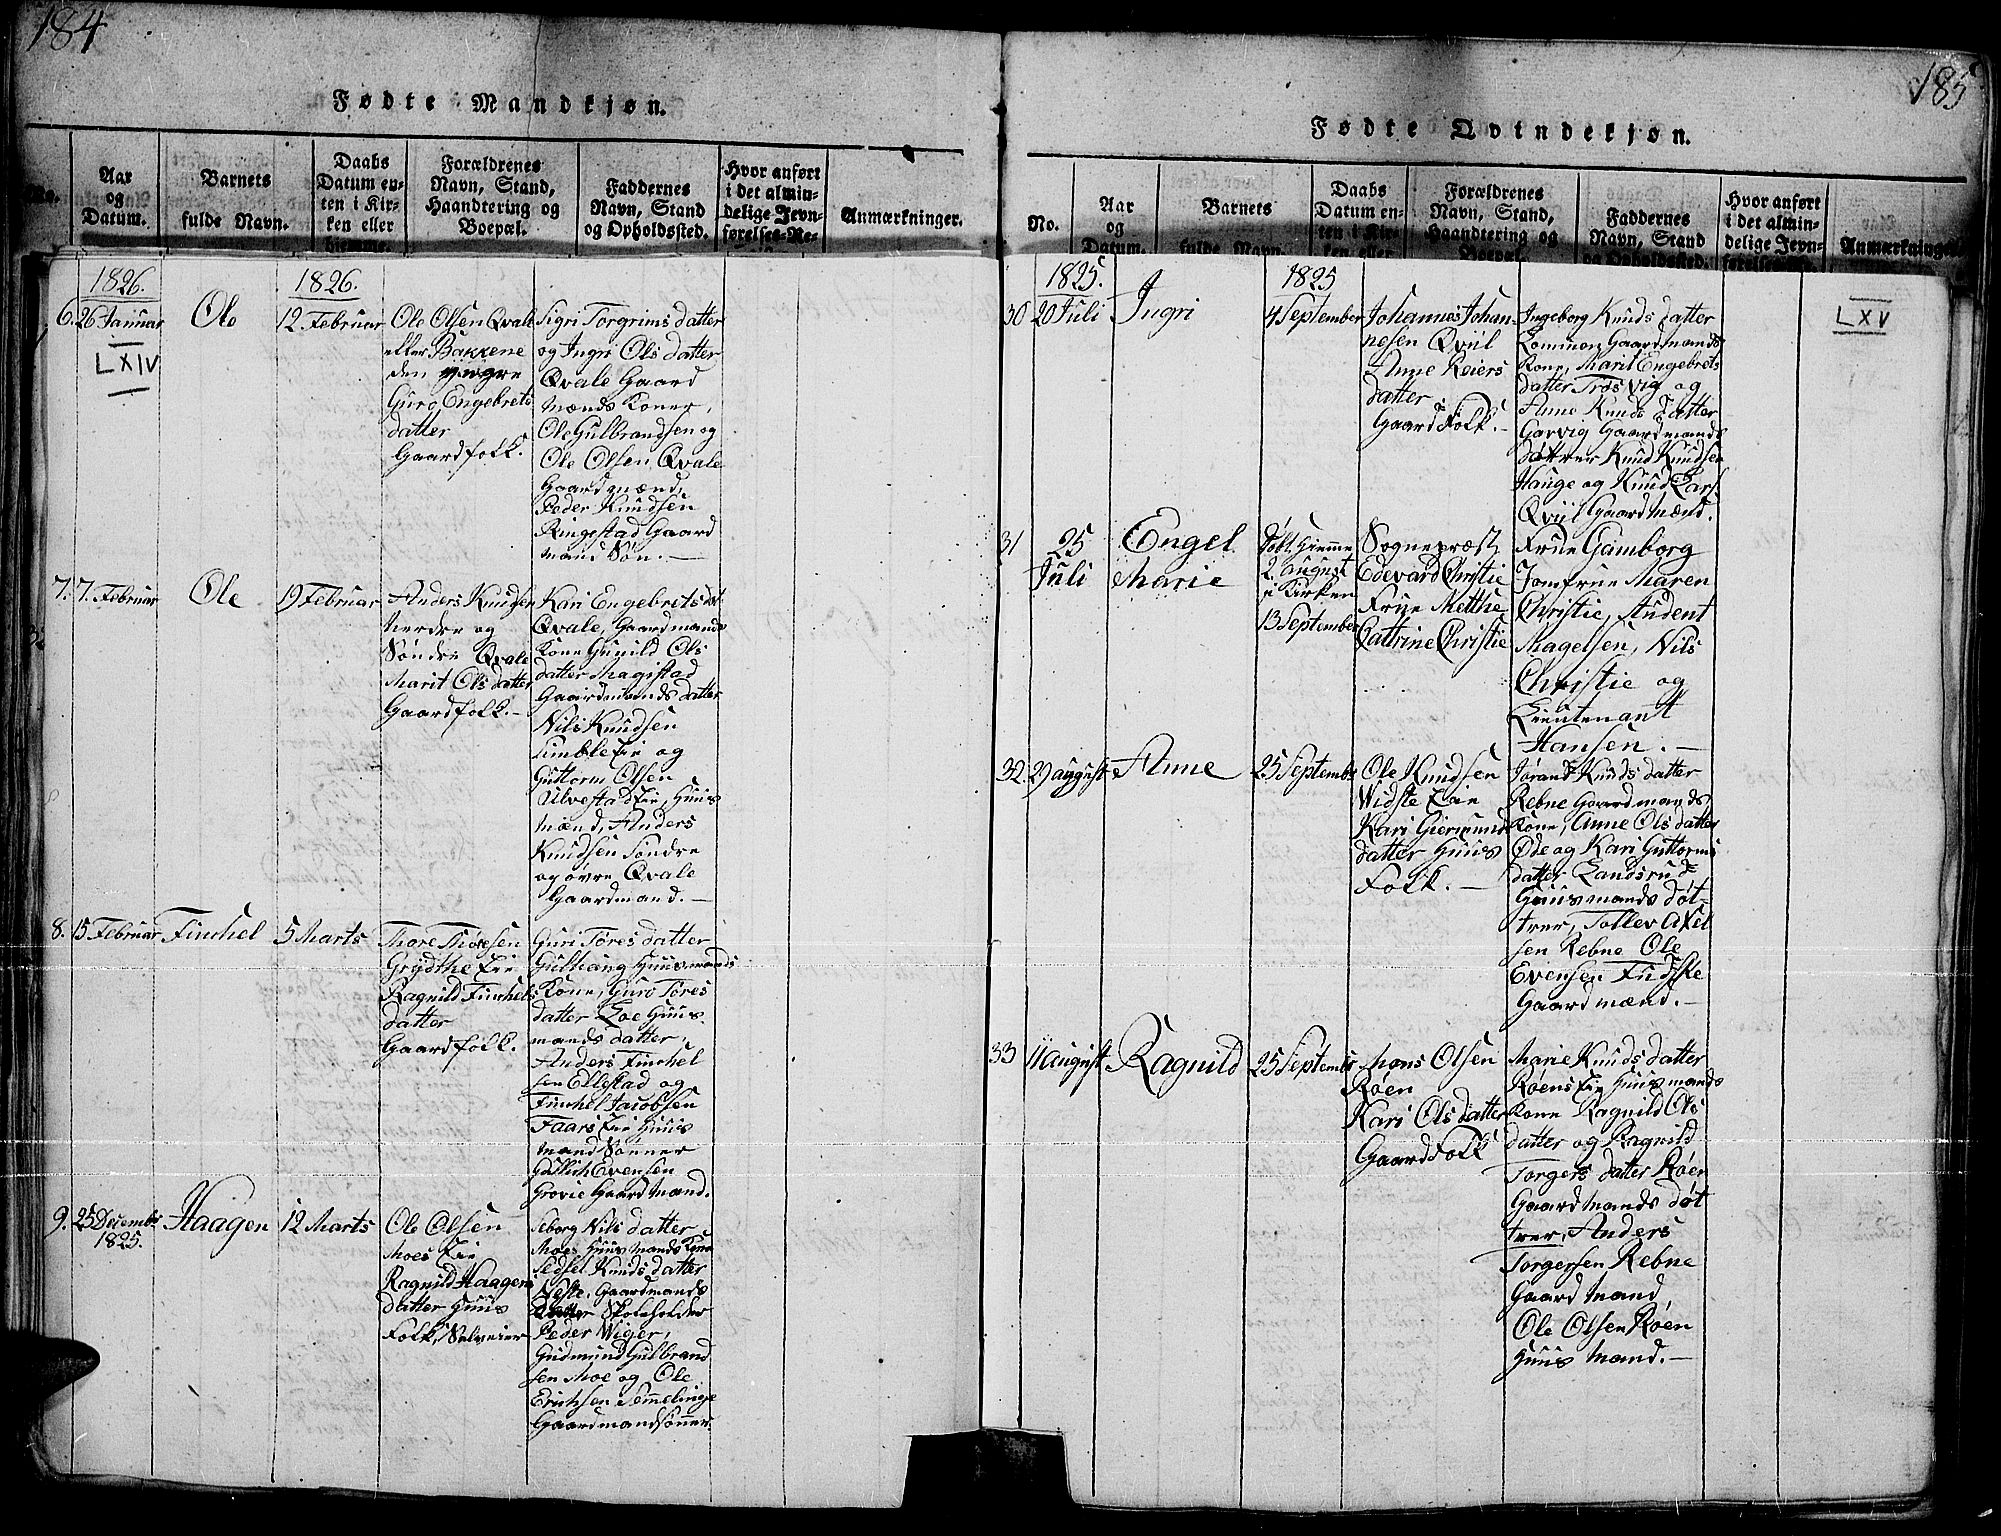 184
Fødte Mandkjøn.
No.
Aar
og
Datum.
Barnets
fulde Navn.
Daabs
Datum en-
ten i Kir-
ken eller
hjemme.
Forældrenes
Navn, Stand,
Haandtering og
Boepæl.
Faddernes
Navn, Stand
og Opholdssted.
Hvor anført
i det almin-
delige Jevn-
førelses-Re-
Anmærkninger.
1826.
1826.
6. 26 Januar
LXIV
Ole
12 Februar
Ole Olsen Qvale
eller Bakkene
den yngre
Guro Engebrets
datter
Gaardfolk.
Sigri Torgrims datter
og Ingri Ols datter
Qvale Gaard
mænds Koner,
Ole Gulbrandsen og
Ole Olsen Qvale
Gaardmænd,
Peder Knudsen
Ringestad Gaard
mand Søn. —
7. 7. Februar
Ole
19 Februar
Anders Knudsen
nerdre og
Søndre Qvale
Marit Ols datter
Gaardfolk. —
Kari Engebretsdat
Qvale, Gaardmands
Kone Gunild Ols
datter Magistad
Gaardmands datter
Nils Knudsen
Eie og
Guttorm Olsen
Ulvestad Eie, Huus
mænd, Anders
Knudsen Søndre
og øvre Qvale
Gaardmand. —
8. 15 Februar
Finchel
5 Marts
Thore Thoresen
Grydthe Eie
Ragnild Finchels
datter
Gaardfolk.
Guri Tores datter
Huusmands
Kone, Guro Tores
datter Loe Huus
mands datter,
Anders Finchel
sen Ellestad og
Finchel Jacobsen
Faars Eie Huus
mand Sønner
Evensen
Grovie Gaard Mand.
9. 25 Decembr
1825.
Haagen
12 Marts
Ole Olsen
Moes Eie
Ragnild Haagens
datter Huus
Folk, Selveier
Seborg Nils datter
Moes Huus Mands Kone
Sedsel Knuds datter
Neste, Gaardmands
Datter Skoleholder
Peder Wiger,
Gudmund Gulbrand
sen Moe og Ole
Erichsen Semmelinge
Gaardmandsønner.
185
Fødte Qvindekjøn.
No.
Aar
og
Datum.
Barnets
fulde Navn.
Daabs
Datum en-
ten i Kir-
ken eller
Forældrenes
Navn, Stand,
Haandtering og
Boepæl.
Faddernes
Navn, Stand
og Opholdssted.
Hvor anført
i det almin-
delige Jevn-
Anmærkninger.
1825.
1825
LXV
30 20 Juli
Ingri
4 September
Johannes Johan-
nesen Qviil
Anne Reiers
datter
Gaard Folk. —
Ingeborg Knuds datter
Lommen Gaardmands
Kone, Marit Engebrets
datter Trosvig og
Anne Knuds Datter
Garvig Gaardmands
døttrer Knud Knudsen
Hauge og Knud Lars
Qviil Gaard Mænd.
31 25
Juli
Engel
Marie
døbt hiemme
2. august
i Kirken
13 September
Sognepræst
Edevard Christie
Frue Metthe
Cattrine Christie
Frue Gamborg
Jomfrue Maren
Christie, Student
Magelsen, Nils
Christie og
Lieutenant
Hansen. —
32. 29 august
Anne
25 Septembr
Ole Knudsen
Widste Eie
Kari Giermund
datter Huus
Folk. —
Jørand Knuds datter
Rebne Gaardmands
Kone, Anne Ols datter
Øde og Kari Guttorms
datter Landsrud
Huusmands døt-
trer, Tollev Axel
sen Rebne Ole
Evensen Fudske
Gaard mænd. —
33 11 august
Ragnild
25 Septembr
Mons Olsen
Røen
Kari Ols datter
Gaard Folk
Marie Knuds datter
Røens Eie Huusmands
Kone Ragnild Ols
datter og Ragnild
Torgers datter Røen
Gaardmands døt
trer, Anders
Torgersen Rebne
Gaard Mand,
Ole Olsen Røen
Huus Mand. —